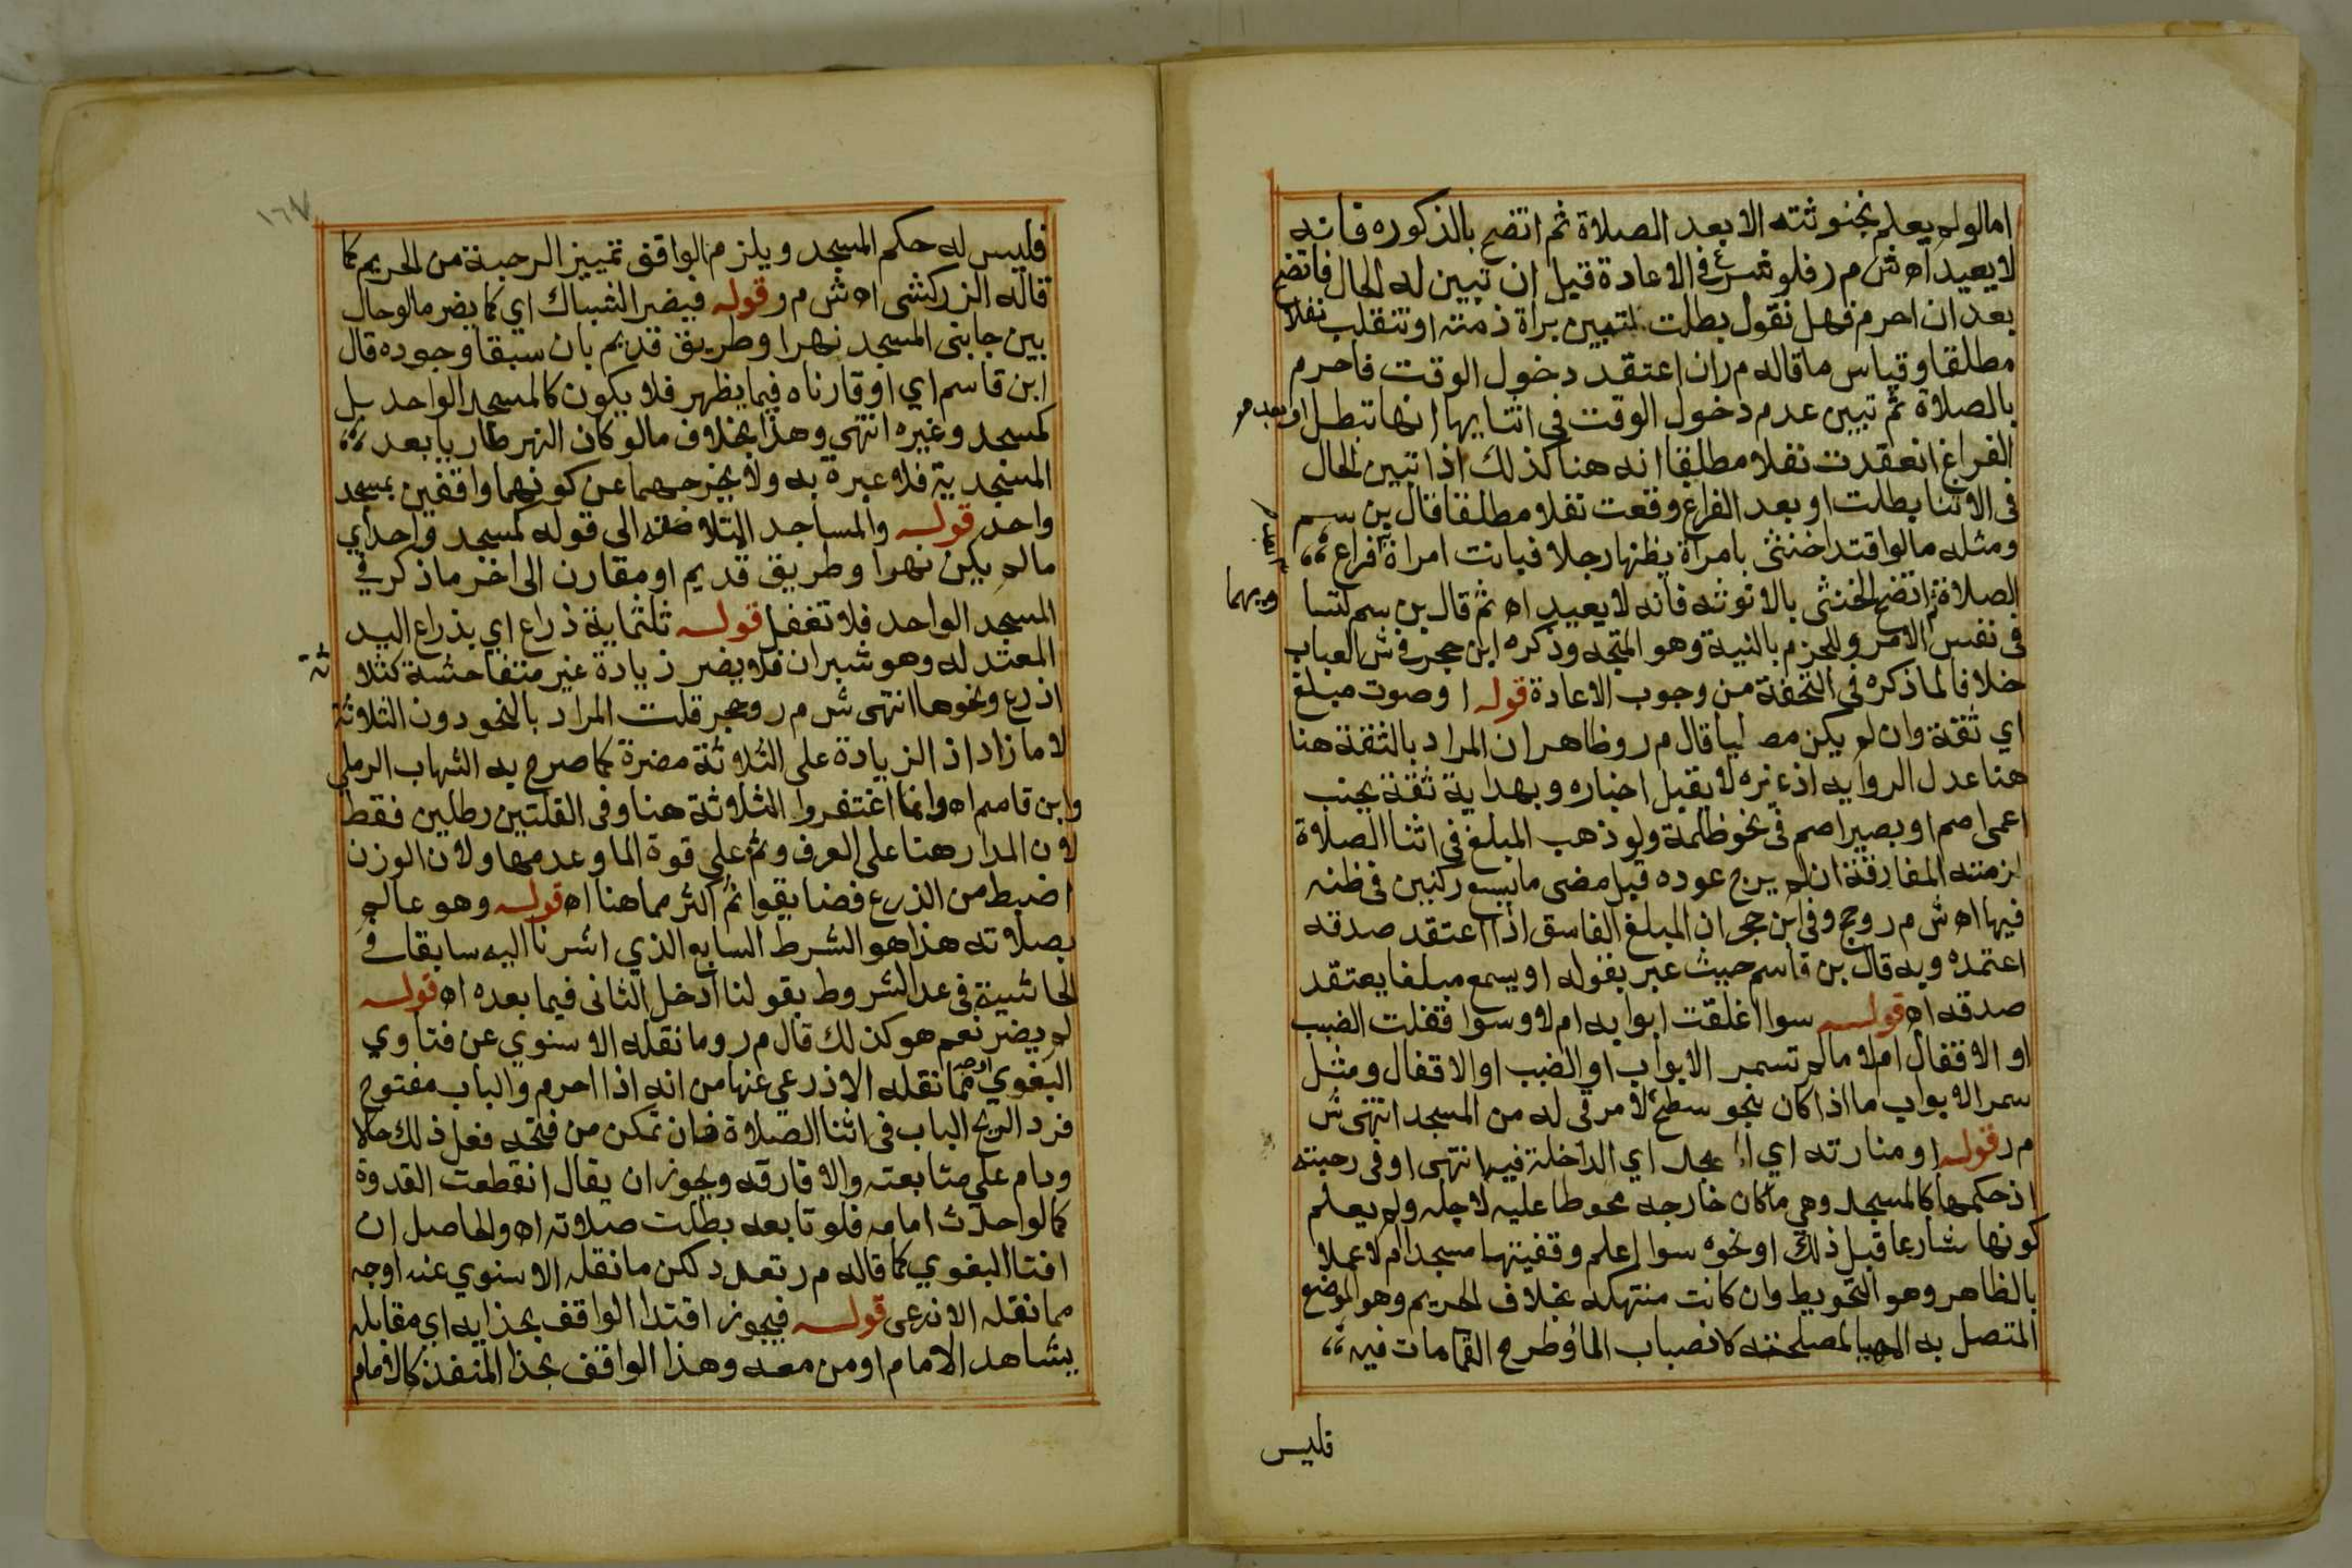 امالولم يعلم بخنوثته الا بعد الصلاة ثم اتضح بالذكوره فانه
لا يعيد اه ش م ر فلو شرع في الاعادة قبل ان تبين له الحال فاتضح
بعد ان احرم فهل نقول بطلت لتبين براة ذمته او تنقلب نفلا
مطلقا وقياس ما قاله م ر ان اعتقد دخول الوقت فاحرم
بالصلاة ثم تبين عدم دخول الوقت في اثنايها انها تبطل او بعد
الفراغ انعقدت نفلا مطلقا انه هنا كذلك اذا تبين الحال
في الاثنا بطلت او بعد الفراغ وقعت نفلا مطلقا قال بن سم
ومثله ما لو اقتدا خنثى بامراة يظنها رجلا فبانت امراة
الصلاة ثم اتضح الخنثى بالانوثه فانه لا يعيد اه ثم قال بن سم
ويهما
في نفس الامر وللجزم بالنية وهو المتجه وذكره ابن حجر في ش العباب
خلافا لما ذكره في التحفة من وجوب الاعادة قوله او صوت مبلغ
اي ثقة وان لم يكن مصليا قال م ر وظاهر ان المراد بالثقة هنا
هنا عدل الروايه اذ غيره لا يقبل اخباره وبهداية ثقة بجنب
اعمى اصم او بصير اصم في نحو ظلمة ولو ذهب المبلغ في اثنا الصلاة
لزمته المفارقة ان لم يرج عوده قبل مضى ما يسع ركنين في ظنه
فيها اه ش م ر وحج وفي ابن حجر ان المبلغ الفاسق اذا اعتقد صدقه
اعتمده وبه قال بن قاسم حيث عبر بقوله او يسمع مبلغا يعتقد
صدقه اه قوله سوا اغلقت ابوابه ام لا وسوا قفلت الضبب
او الاقفال ام لا ما لم تسمر الابواب او الضبب او الاقفال ومثل
سمر الابواب ما اذا كان بنحو سطح لا مرقى له من المسجد انتهى ش
م ر قوله او منارته اي اي الداخلة فيها انتهى او في رحبته
اذ حكمها كالمسجد وهي ما كان خارجه محوطا عليه لاجله ولم يعلم
كونها شارعا قبل ذلك او نحوه سوا اعلم وقفيتها مسجدا ام لا عملا
بالظاهر وهو التحويط وان كانت منتهكه بخلاف الحريم وهو الموضع
المتصل به المهيا لمصلحته كانصباب الما وطرح القمامات فيه
فليس
١٦٧
فليس له حكم المسجد ويلزم الواقف تمييز الرحبة من الحريم كما
قاله الزركشى اه ش م ر قوله فيضر الشباك اي كما يضر ما لو حال
بين جابنى المسجد نهر او طريق قديم بان سبقا وجوده قال
ابن قاسم اي او قارناه فيما يظهر فلا يكون كالمسجد الواحد بل
كمسجد وغيره انتهي وهذا بخلاف ما لو كان النهر طاريا بعد
المسجدية فلا عبرة به ولا يخرجهما عن كونهما واقفين بمسجد
واحد قوله والمساجد المتلاصقه الى قوله كمسجد واحد اي
مالم يكن نهر او طريق قديم او مقارن الى اخر ما ذكر في
المسجد الواحد فلا تغفل قوله ثلثماية ذراع اي بذراع اليد
المعتدله وهو شبران فلا يضر زيادة غير متفاحشة كثلا ثة
اذرع ونحوها انتهى ش م ر وحجر قلت المراد بالنحو دون الثلاثة
لا ما زاد اذ الزيادة على الثلاثة مضرة كما صرح به الشهاب الرملي
وابن قاسم اه وانما اغتفروا الثلاثة هنا وفي القلتين رطلين فقط
لان المدار هنا على العرف وثم علي قوة الما وعدمها ولان الوزن
اضبط من الذرع فضايقوا ثم اكثر مما هنا اه قوله وهو عالم
بصلاته هذا هو الشرط السابع الذي اشرنا اليه سابقا في
الحاشية في عد الشروط بقولنا ادخل الثانى فيما بعده اه قوله
لم يضر نعم هو كذلك قال م ر وما نقله الاسنوي عن فتاوي
البغوي اوجه مما نقله الاذرعي عنها من انه اذا احرم والباب مفتوح
فرد الريح الباب في اثنا الصلاة فان تمكن من فتحه فعل ذلك حالا
ودام علي متابعته والا فارقه ويجوز ان يقال انقطعت القدوة
كما لو احدث امامه فلو تابعه بطلت صلاته اه والحاصل ان
افتا البغوي كما قاله م ر تعدد لكن ما نقله الاسنوي عنه اوجه
مما نقله الاذرعى قوله فيجوز اقتدا الواقف بحذايه اي مقابله
يشاهد الامام او من معه وهذا الواقف بحذا المنفذ كالامام